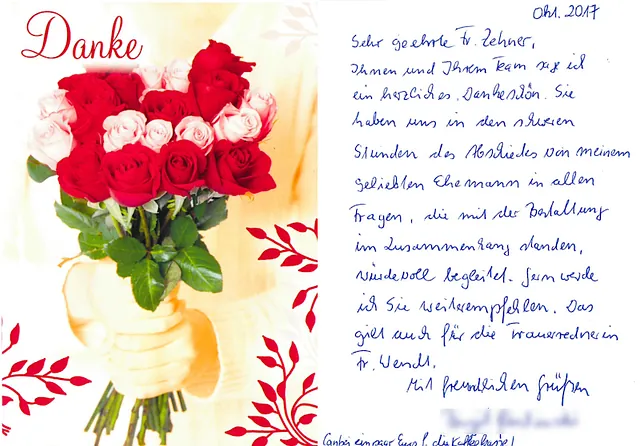 Danke
Okt. 2017
Sehr geehrte Fr. Zehner,
Ihnen und Ihrem Team sage ich
ein herzliches Dankeschön. Sie
haben uns in den schweren
Stunden des Abschiedes von meinem
geliebten Ehemann in allen
Fragen, die mit der Bestattung
im Zusammenhang standen,
würdevoll begleitet. Gern werde
ich Sie weiterempfehlen. Das
gilt auch für die Trauerrednerin
Fr. Wendt.
Mit freundlichen Grüßen
(anbei ein paar Euro f. die Kaffeekasse!